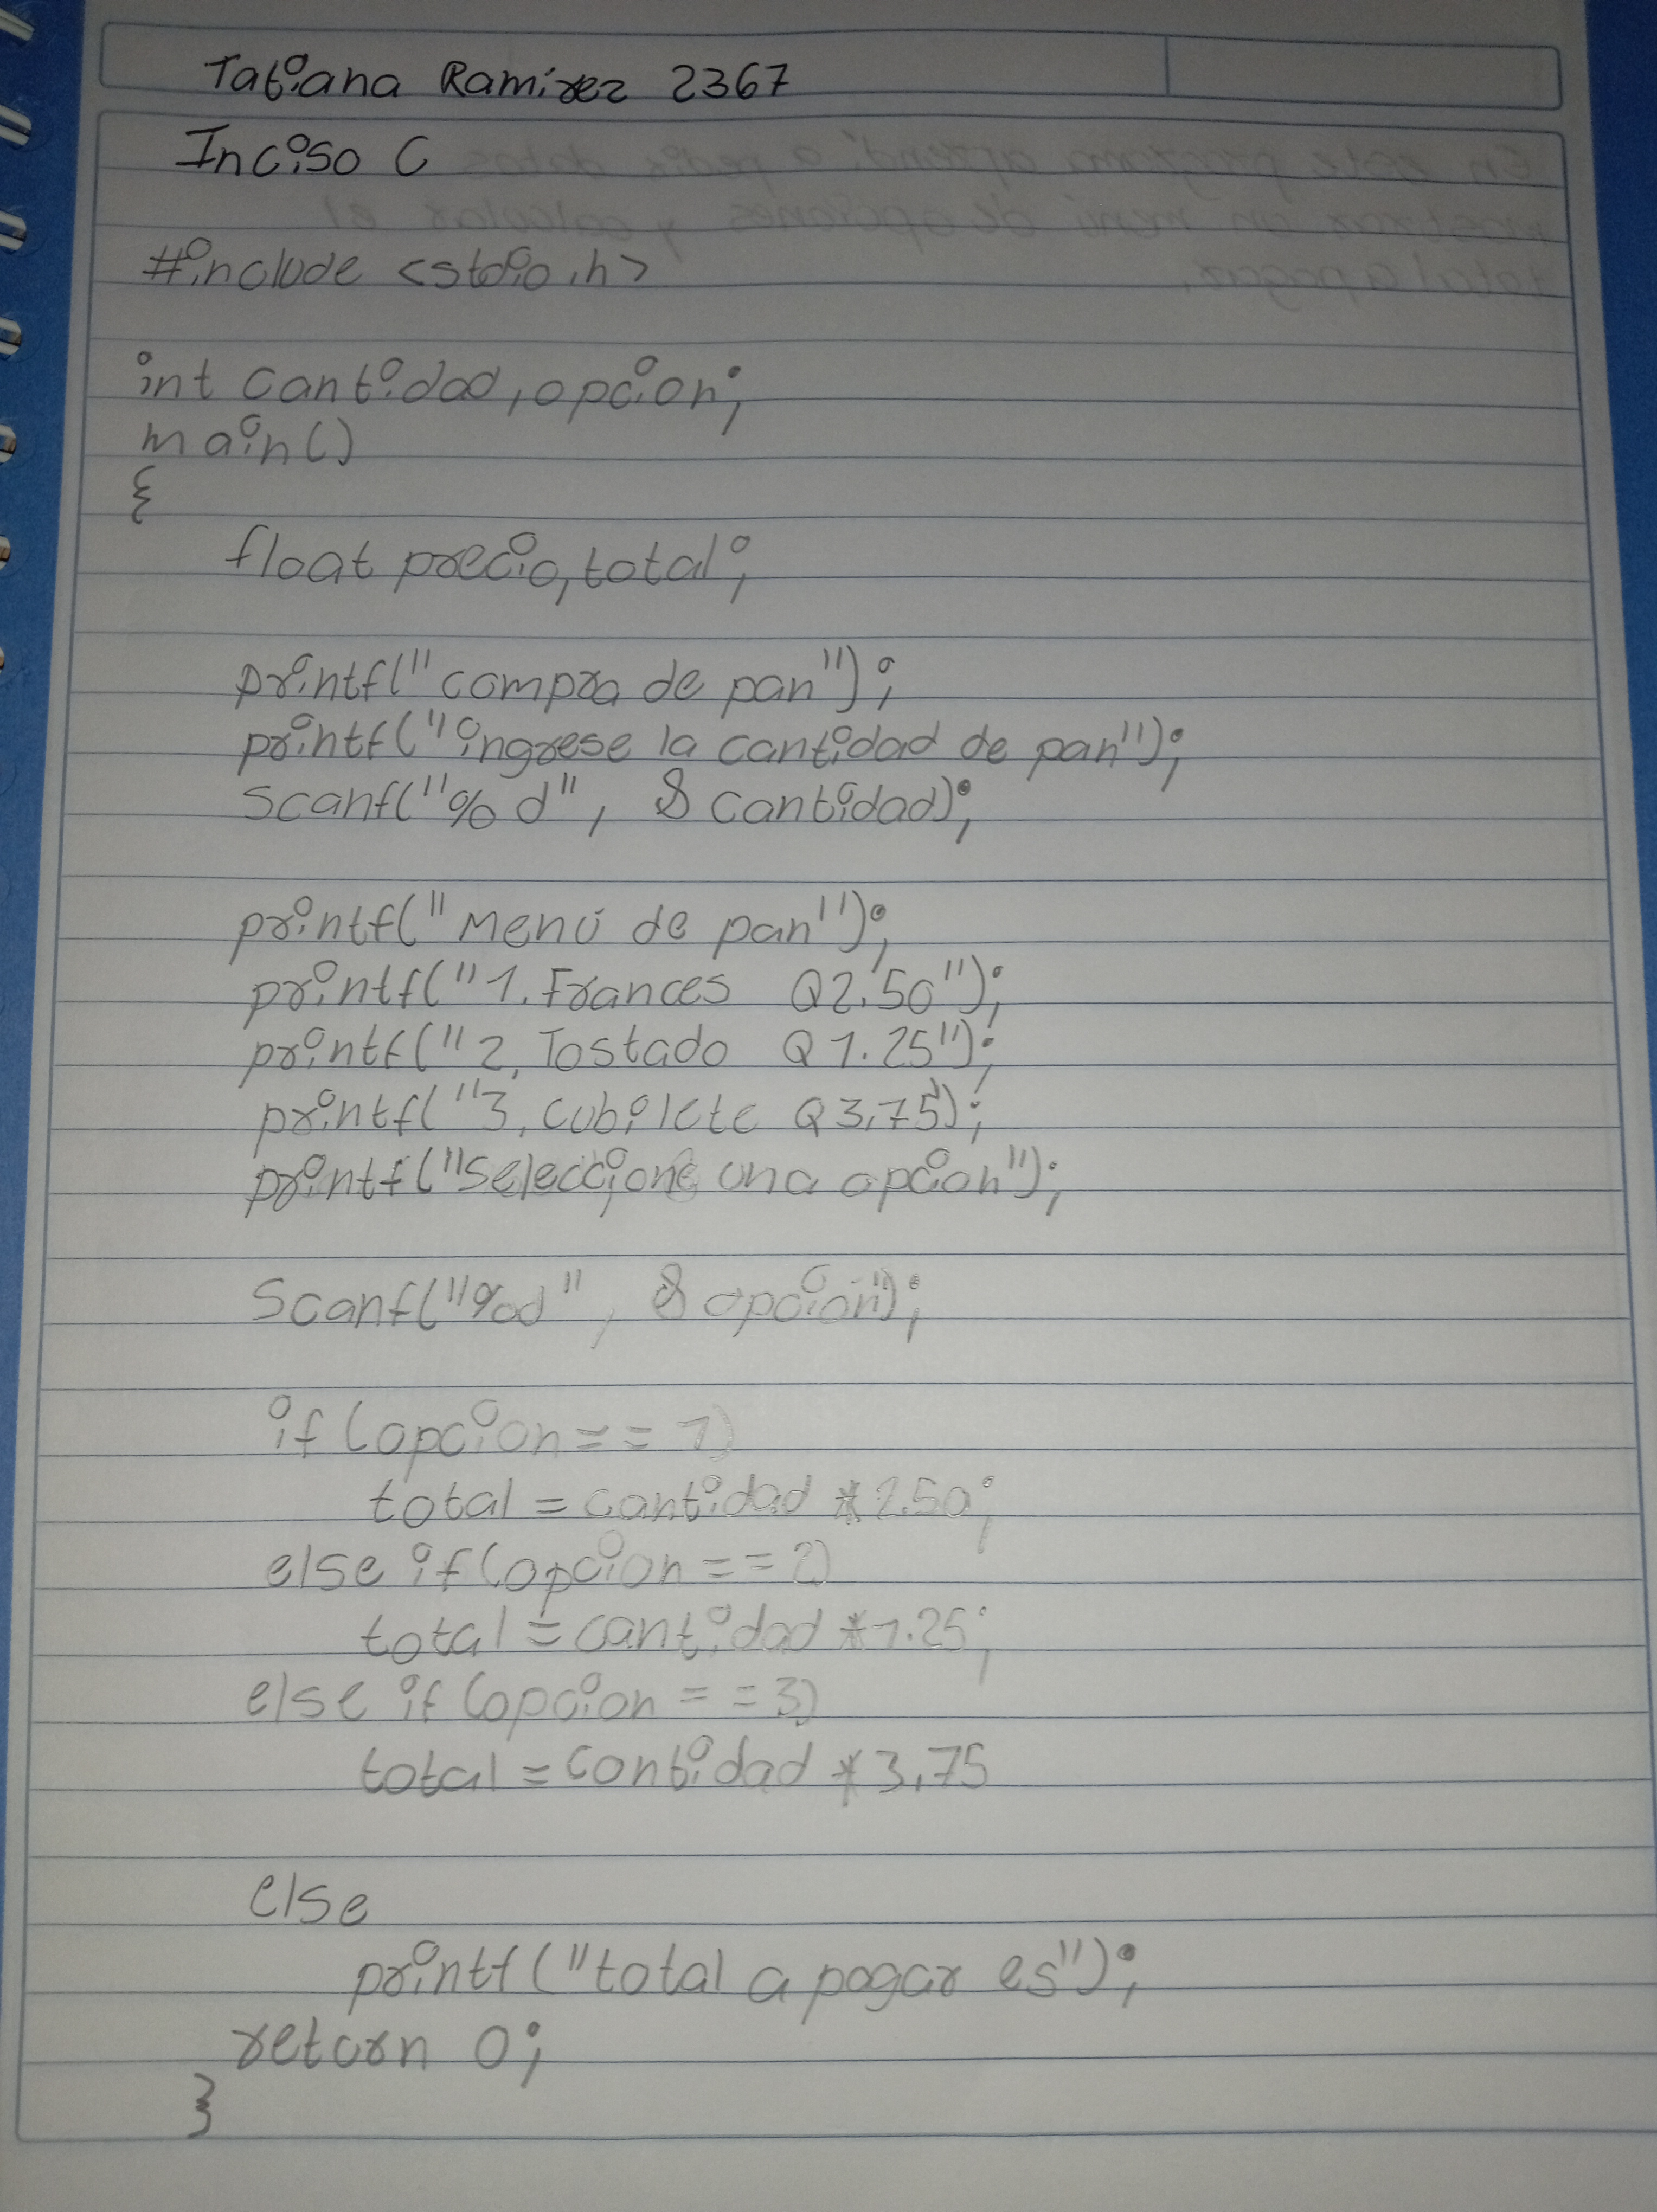 Tatiana Ramirez 2367
Inciso C
#include <stdio.h>
int cantidad, opcion;
main()
{
float precio, total;
printf("compra de pan");
printf("ingrese la cantidad de pan");
scanf("%d", & cantidad);
printf("Menú de pan");
printf("1. Frances Q2.50");
printf("2. Tostado Q1.25");
printf("3. cubilete Q3.75);
printf("seleccione una opcion");
scanf("%d", & opcion");
if (opcion == 1)
total = cantidad * 2.50;
else if (opcion == 2)
total = cantidad * 1.25;
else if (opcion == 3)
total = cantidad * 3.75
else
printf("total a pagar es");
return 0;
}